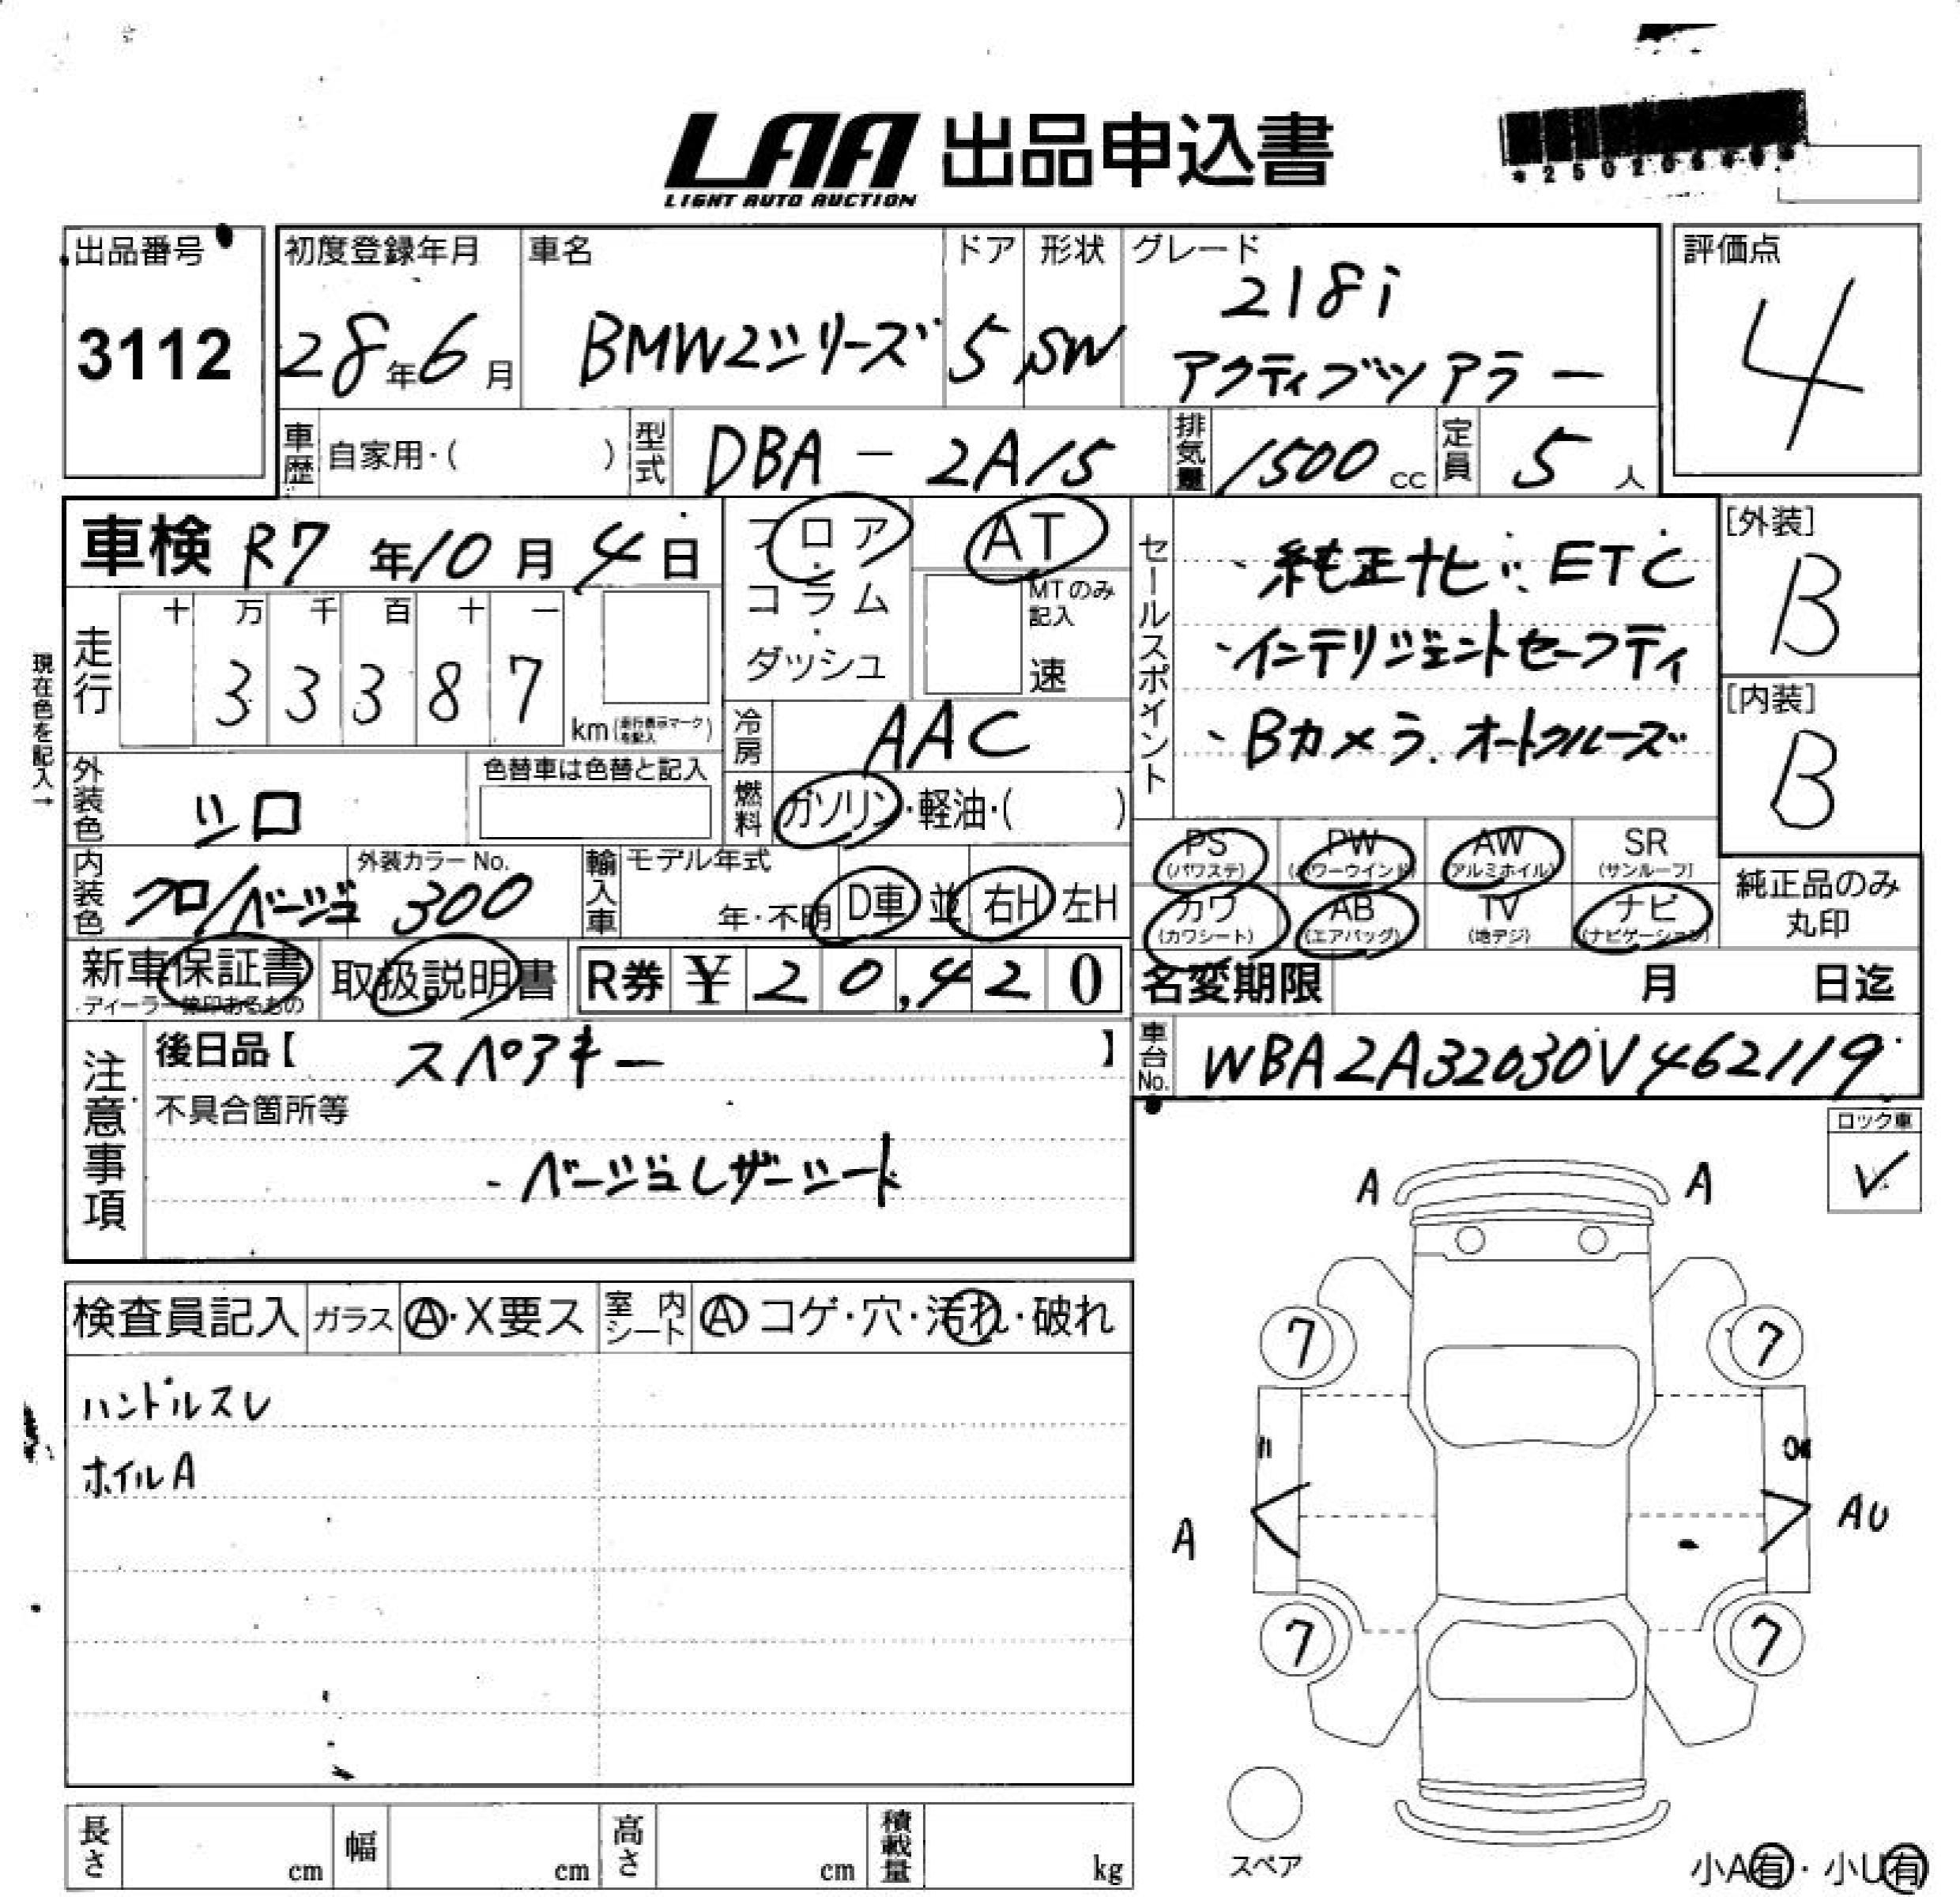 LAA 出品申込書
LIGHT AUTO AUCTION
出品番号
3112
初度登録年月
28年6月
車名
BMW2シリーズ
ドア
5
形状
SW
グレード
218i
アクティブツアラー
評価点
4
車歴 自家用・( )
型式 DBA-2A15
排気量 1500 cc
定員 5人
車検 R7年10月4日
フロア・コラム・ダッシュ
AT
MTのみ記入
速
セールスポイント
・純正ナビ・ETC
・インテリジェントセーフティ
・Bカメラ.オートクルーズ
[外装]
B
[内装]
B
現在色を記入→
走行
十 万 千 百 十 一
3 3 3 8 7
km(走行表示マークを記入)
冷房 AAC
燃料 ガソリン・軽油・( )
外装色 シロ
色替車は色替と記入
内装色 クロ/ベージュ
外装カラーNo.
300
輸入車 モデル年式
年・不明 D車 並 右H 左H
PS (パワステ)
PW (パワーウインド)
AW (アルミホイル)
SR (サンルーフ)
カワ (カワシート)
AB (エアバッグ)
TV (地デジ)
ナビ (ナビゲーション)
純正品のみ
丸印
新車保証書
取扱説明書
R券 ¥ 20,420
名変期限 月 日迄
車台No. WBA2A32030V462119
注意事項
後日品【 スペアキー 】
不具合箇所等
・ベージュレザーシート
ロック車
✓
検査員記入 ガラス A・X要ス 室内シート A コゲ・穴・汚れ・破れ
ハンドルスレ
ホイルA
A A
7 7
A AU
7 7
スペア
長さ cm 幅 cm 高さ cm 積載量 kg
小A有・小U有